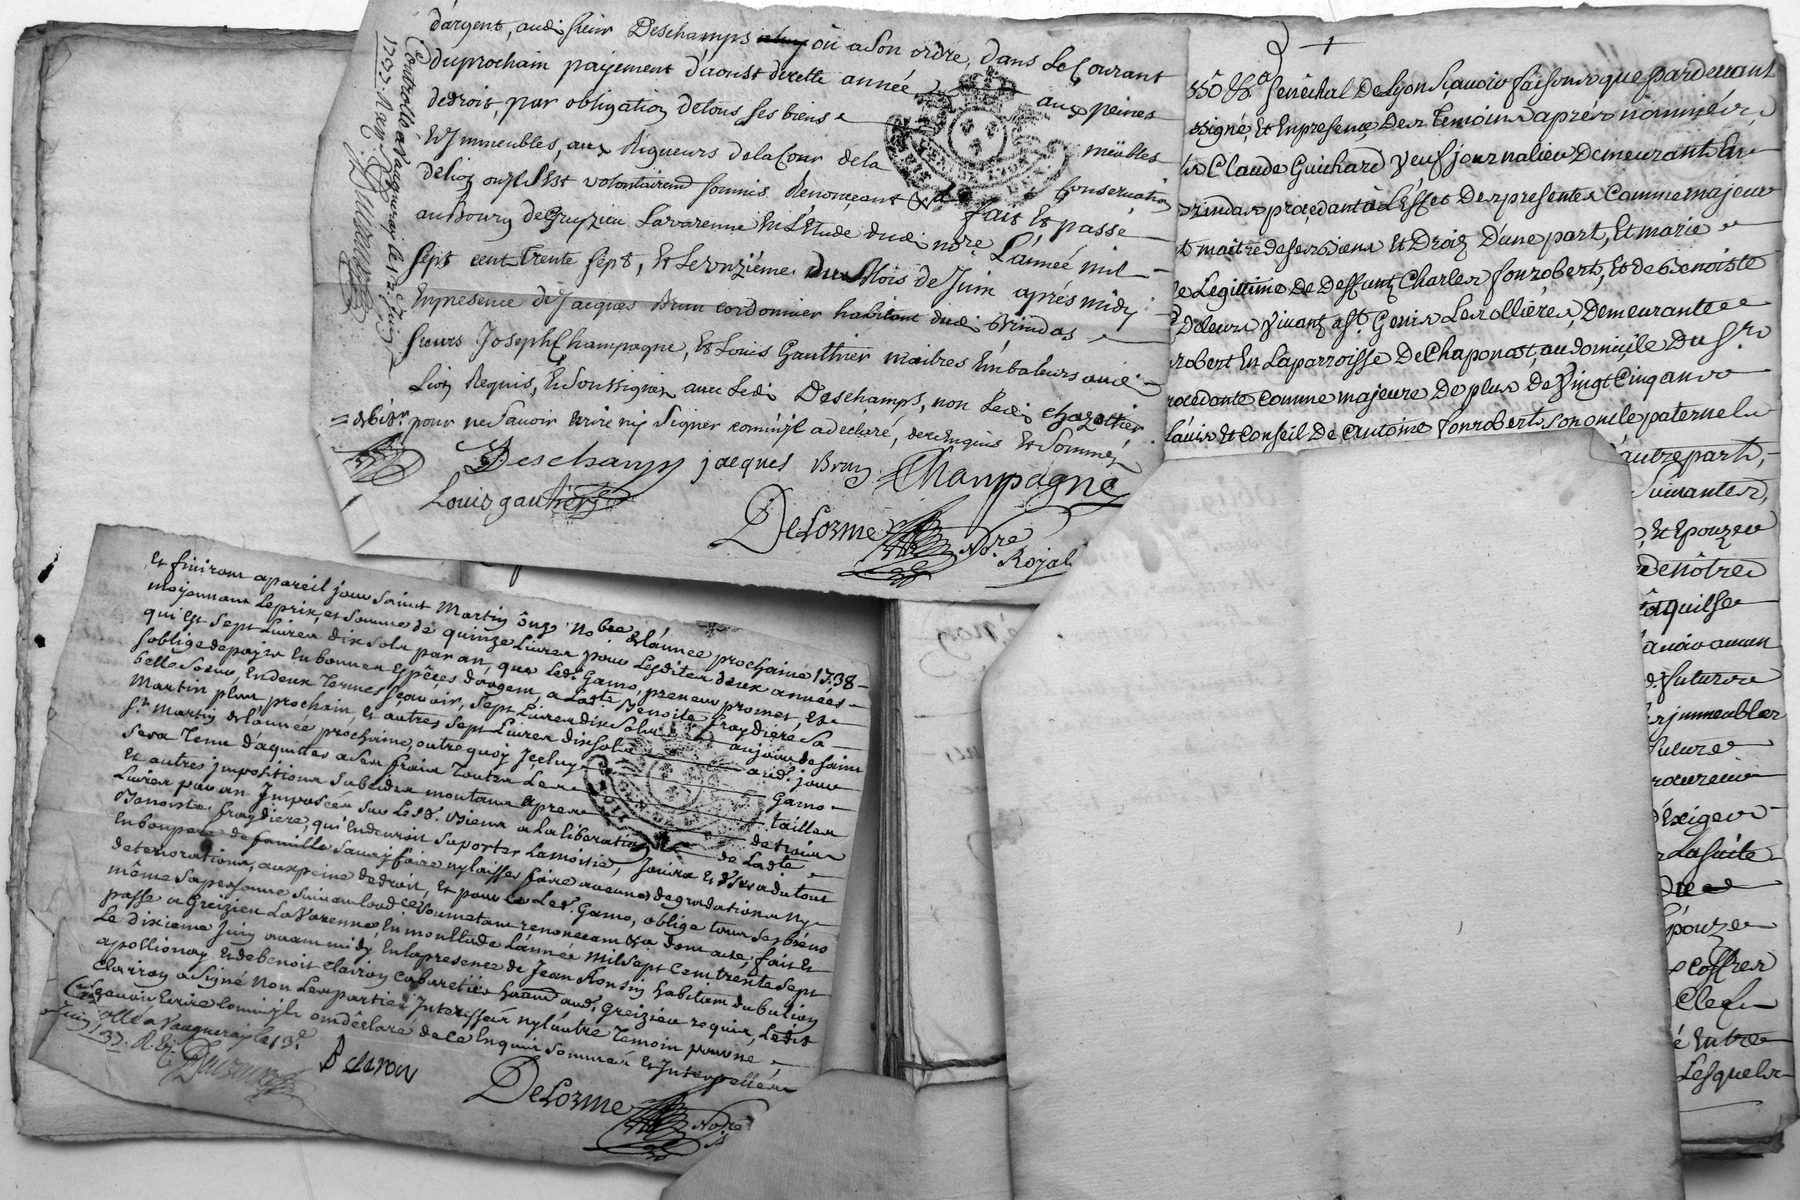 d'argent, audi sieur Deschamps où a son ordre, dans le Courant
du prochain payement d'aoust de cette année aux peines
de droit, par obligation de tous ses biens meubles
Et immeubles, aux Rigueurs de la Cour de la Conservation
de lion ou il s'est volontairemt soumis Renonçant fait Et passé
au Bourg de Greyzieu Lavarenne En L'Etude dudi nore L'année mil
sept cent trente sept, Et Le onzième du Mois de Juin aprés midy
En presence de Jacques Brun cordonnier habitant dudi Brindas
sieurs Joseph Champagne, Et Louis Gauthier maitres Embaleurs
Lion Requis, En Soussignés avec Ledi Deschamps, non Ledi chazottier
pour ne Savoir Ecrire ny Signer comm'jl a declaré, de ce Enquis Et Sommé
Deschamps jacques Brun Champagne
Louis gauthier
DeLorme Nore
Royal
Controllé a Vaugneray le 13e Juin
1737. Reçu
Et finiront a pareil jour saint Martin ônze nobre de l'année prochaine 1738
moyennant Le prix, et somme de quinze Livres pour Lesdites deux années
qui Est sept Livres dix sols par an, que Led. Gamo, preneur promet, Et
s'oblige de payer En bonnes Espêces d'argent, a Ladte Benoite fraydiere Sa
belle Soeur, En deux Termes sçavoir, sept Livres dix Sols aujour de saint
Martin plus prochain, et autres sept Livres dix sols aud. jour
st Martin de l'année prochaine, outre quoy jceluy Gamo
sera Tenu d'aquitter a ses frais Toutes Les tailles
Et autres jmpositions subsides montant apres de trois
Livres par an Jmposées sur Les d. Biens a la liberation de Ladte
Benoiste fraydiere, qui En devroit suporter La moitié, Jouira Et Usera du tout
En bon pere de famille sans y faire ny laisser faire aucunes degradations ny
deteriorations, aux peine de droit, Et pour ce Led. Gamo, oblige tous ses biens
même sa personne renoncant dont acte, fait Et
passé a Greizieu La Varenne En mon Etude L'année mil sept Cent trente sept
Le dixieme Juin avant midy En la presence de Jean Ronsin habitant du
apollionay Et de benoit Clairon Cabaretier habitant aud. Greizieu requis, Ledit
Clairon a Signé Non Les parties Jnteressées ny l'autre Temoin pour ne
sçavoir Ecrire Comm'jls ont declaré de ce Enquis sommés et Jnterpellés
ollé a Vaugneray le 13e
juin 1737. R.
B cleron
DeLorme Nore
Senéchal De Lyon sçavoir faisons que pardevant
ssigné, Et En presence Des Temoins aprés nommés,
Claude Guichard Veuf journalier Demeurant En
rindas procedant a L'effet Des presentes Comme majeur
t maitre de ses biens Et Droiz D'une part, Et marie
e Legitime De Deffunt Charles fonrobert, Et de Benoiste
Deleurs Vivant a st Genis Les ollières, Demeurante
robert En La parroisse De Chaponost, au domicile Du Sr
rocedante comme majeure De plus De Vingt Cinq ans
l'avis Et Conseil De antoine fonrobert son oncle paternel
autre part,
suivantes,
, Et Epouze
De nôtre
a qu'il se
avoir aucun
d. future
immeubles
future
rocureur
D'Exiger
La suite
L'épouze
Coffres
Clef
é Entre
Lesquels